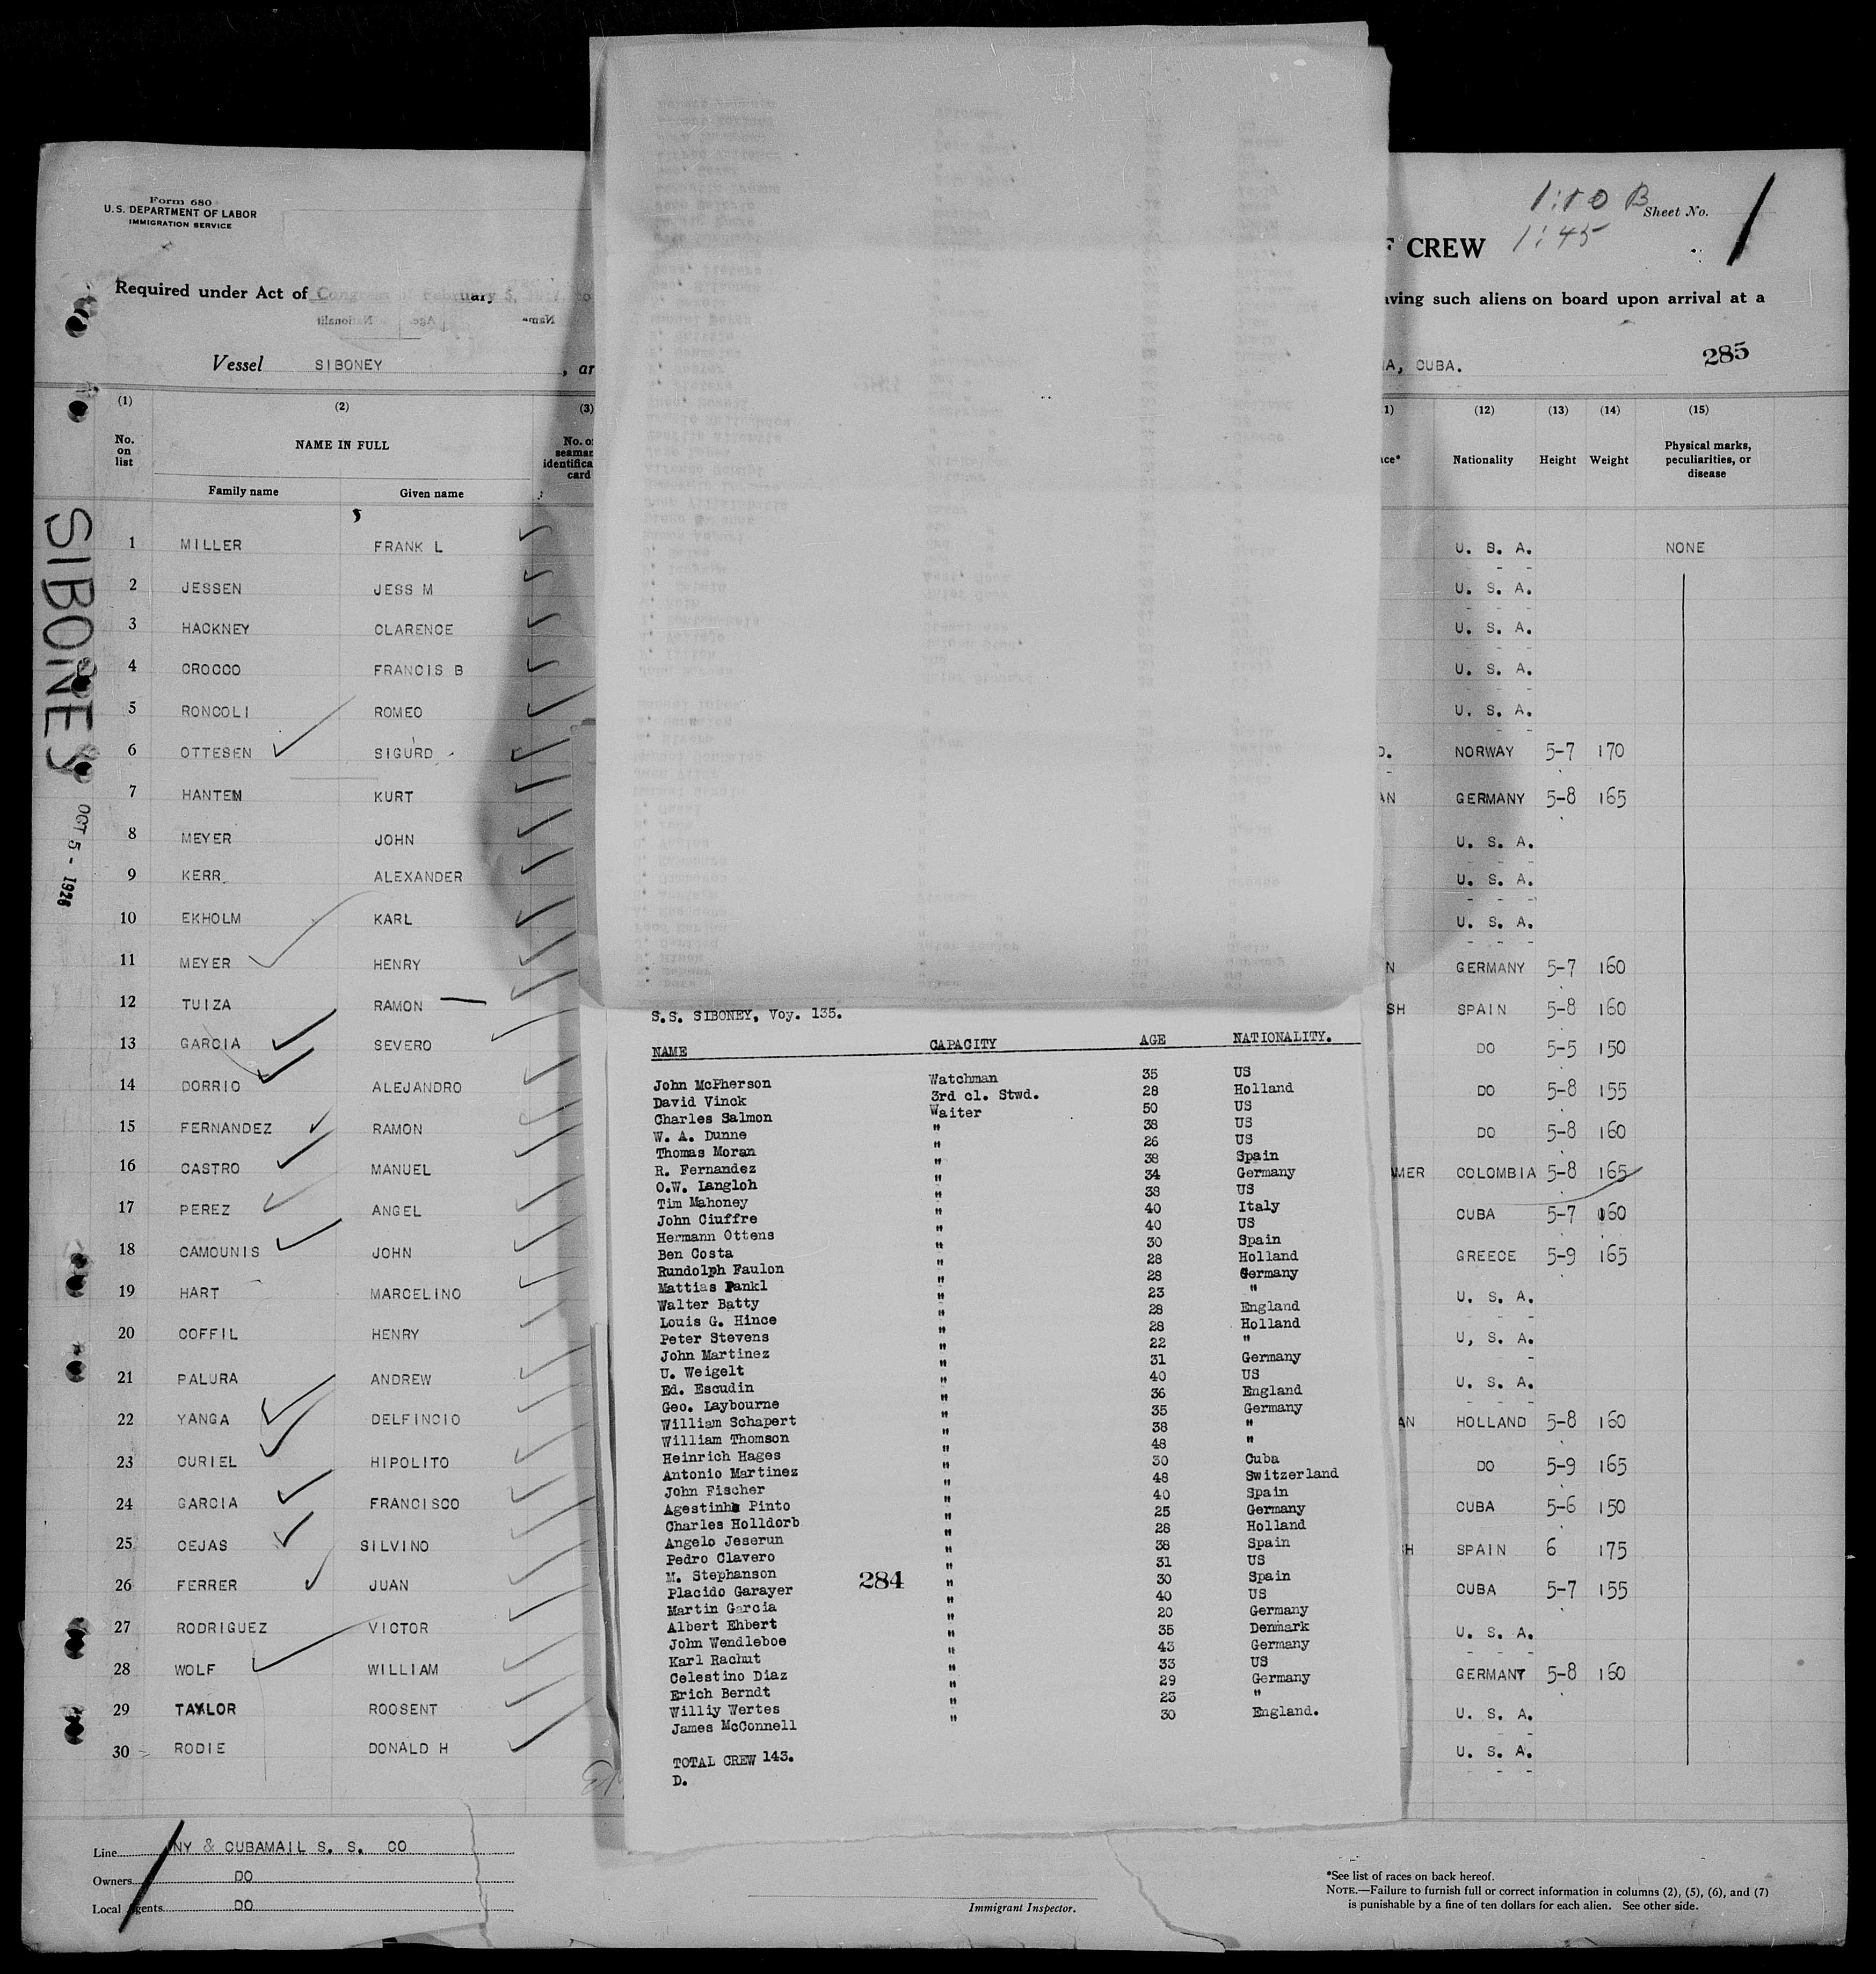 Form 680
U.S. DEPARTMENT OF LABOR
IMMIGRATION SERVICE
1:10 B
1:45
Sheet No. 1
CREW
Required under Act of Congress of February 5,
aving such aliens on board upon arrival at a
Vessel SIBONEY , ar
A, CUBA.
285
(1) (2) (3) (12) (13) (14) (15)
No. on list NAME IN FULL Nationality Height Weight Physical marks, peculiarities, or disease
Family name Given name
SIBONEY
OCT 5 - 1926
1 MILLER FRANK L U. S. A. NONE
2 JESSEN JESS M U. S. A.
3 HACKNEY CLARENCE U. S. A.
4 CROCCO FRANCIS B U. S. A.
5 RONCOLI ROMEO U. S. A.
6 OTTESEN SIGURD NORWAY 5-7 170
7 HANTEN KURT AN GERMANY 5-8 165
8 MEYER JOHN U. S. A.
9 KERR ALEXANDER U. S. A.
10 EKHOLM KARL U. S. A.
11 MEYER HENRY N GERMANY 5-7 160
12 TUIZA RAMON SH SPAIN 5-8 160
13 GARCIA SEVERO DO 5-5 150
14 DORRIO ALEJANDRO DO 5-8 155
15 FERNANDEZ RAMON DO 5-8 160
16 CASTRO MANUEL MER COLOMBIA 5-8 165
17 PEREZ ANGEL CUBA 5-7 160
18 CAMOUNIS JOHN GREECE 5-9 165
19 HART MARCELINO U. S. A.
20 COFFIL HENRY U, S. A.
21 PALURA ANDREW U. S. A.
22 YANGA DELFINCIO AN HOLLAND 5-8 160
23 CURIEL HIPOLITO DO 5-9 165
24 GARCIA FRANCISCO CUBA 5-6 150
25 CEJAS SILVINO H SPAIN 6 175
26 FERRER JUAN CUBA 5-7 155
27 RODRIGUEZ VICTOR U. S. A.
28 WOLF WILLIAM GERMANY 5-8 160
29 TAYLOR ROOSENT U. S. A.
30 RODIE DONALD H U. S. A.
S.S. SIBONEY, Voy. 135.
NAME CAPACITY AGE NATIONALITY.
John McPherson Watchman 35 US
David Vinck 3rd cl. Stwd. 28 Holland
Charles Salmon Waiter 50 US
W. A. Dunne " 38 US
Thomas Moran " 26 US
R. Fernandez " 38 Spain
O.W. Langloh " 34 Germany
Tim Mahoney " 38 US
John Ciuffre " 40 Italy
Hermann Ottens " 40 US
Ben Costa " 30 Spain
Rundolph Faulon " 28 Holland
Mattias Pankl " 28 Germany
Walter Batty " 23 "
Louis G. Hince " 28 England
Peter Stevens " 28 Holland
John Martinez " 22 "
U. Weigelt " 31 Germany
Ed. Escudin " 40 US
Geo. Laybourne " 36 England
William Schapert " 35 Germany
William Thomson " 38 "
Heinrich Hages " 48 "
Antonio Martinez " 30 Cuba
John Fischer " 48 Switzerland
Agestinha Pinto " 40 Spain
Charles Holldorb " 25 Germany
Angelo Jeserun " 28 Holland
Pedro Clavero " 38 Spain
M. Stephanson " 31 US
Placido Garayer " 30 Spain
Martin Garcia " 40 US
Albert Ehbert " 20 Germany
John Wendleboe " 35 Denmark
Karl Rachut " 43 Germany
Celestino Diaz " 33 US
Erich Berndt " 29 Germany
Williy Wertes " 23 "
James McConnell " 30 England.
284
TOTAL CREW 143.
D.
Line NY & CUBAMAIL S. S. CO
Owners DO
Local Agents DO
Immigrant Inspector.
*See list of races on back hereof.
NOTE.—Failure to furnish full or correct information in columns (2), (5), (6), and (7)
is punishable by a fine of ten dollars for each alien. See other side.